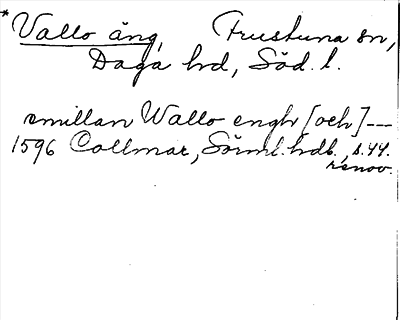 * Vallo äng, Frustuna sn,
Daga hd, Söd. l.
emillan Wallo engh [och] ---
1596 Collmar, Sörml. hdb., s. 44.
renov.